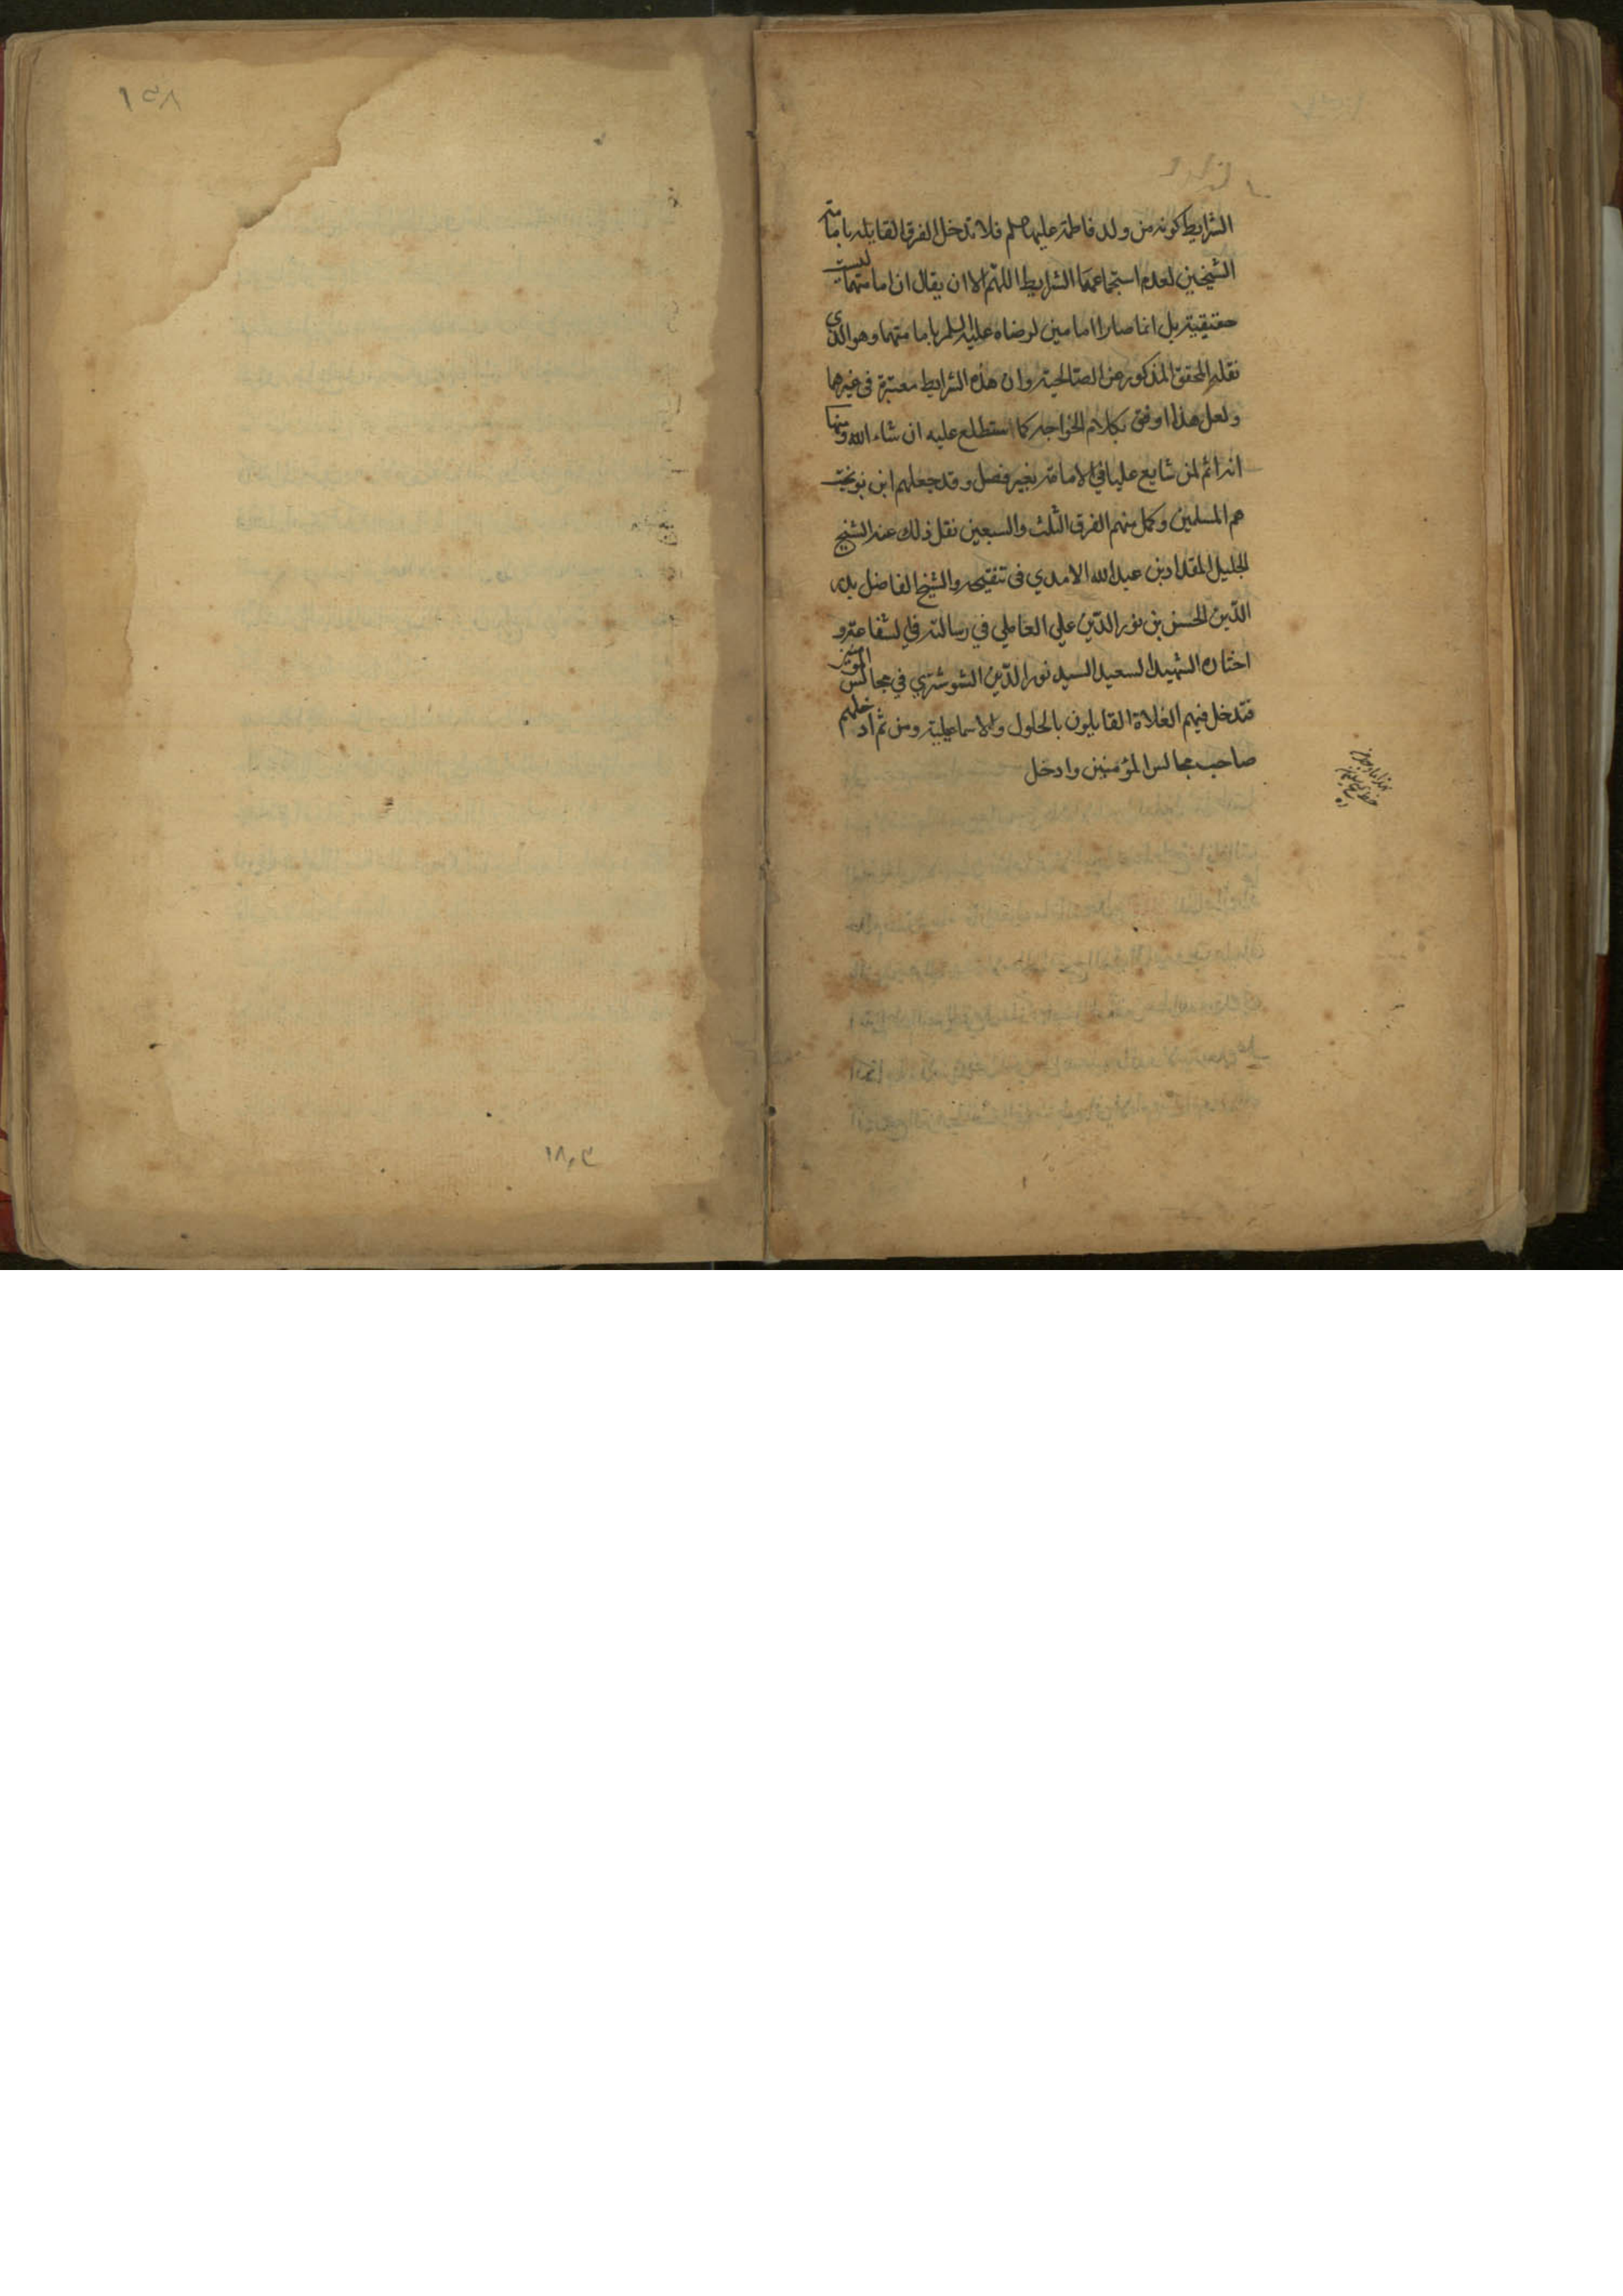 الشرايط كونه من ولد فاطمة عليها صلم فلا تدخل الفرق القايله بامامته
الشيخين لعدم استجماعهما الشرايط اللهم الا ان يقال ان امامتهما ليست
حقيقية بل انما صارا امامين لرضاه عليه السلم بامامتهما وهو الذي
نقله المحقق المذكور عن الصالحية وان هذه الشرايط معتبرة في غيرهما
ولعل هذا اوفق بكلام الخواجه كما استطلع عليه ان شاء الله ومنها
انه اسم لمن شايع عليا في الامامة بغير فصل وقد جعلهم ابن نوبخت
هم المسلمين وكمل منهم الفرق الثلث والسبعين نقل ذلك عنه الشيخ
الجليل المقداد بن عبد الله الاسدي في تنقيحه والشيخ الفاضل بدر
الدين الحسن بن نور الدين علي العاملي في رسالته في الشفاعة و
اختاره الشهيد السعيد السيد نور الدين الشوشتري في مجالس المومنين
فتدخل فيهم الغلاة القايلون بالحلول والاسماعيلية ومن ثم ادخلهم
صاحب مجالس المؤمنين وادخل
١٣٨
١٨٠٣